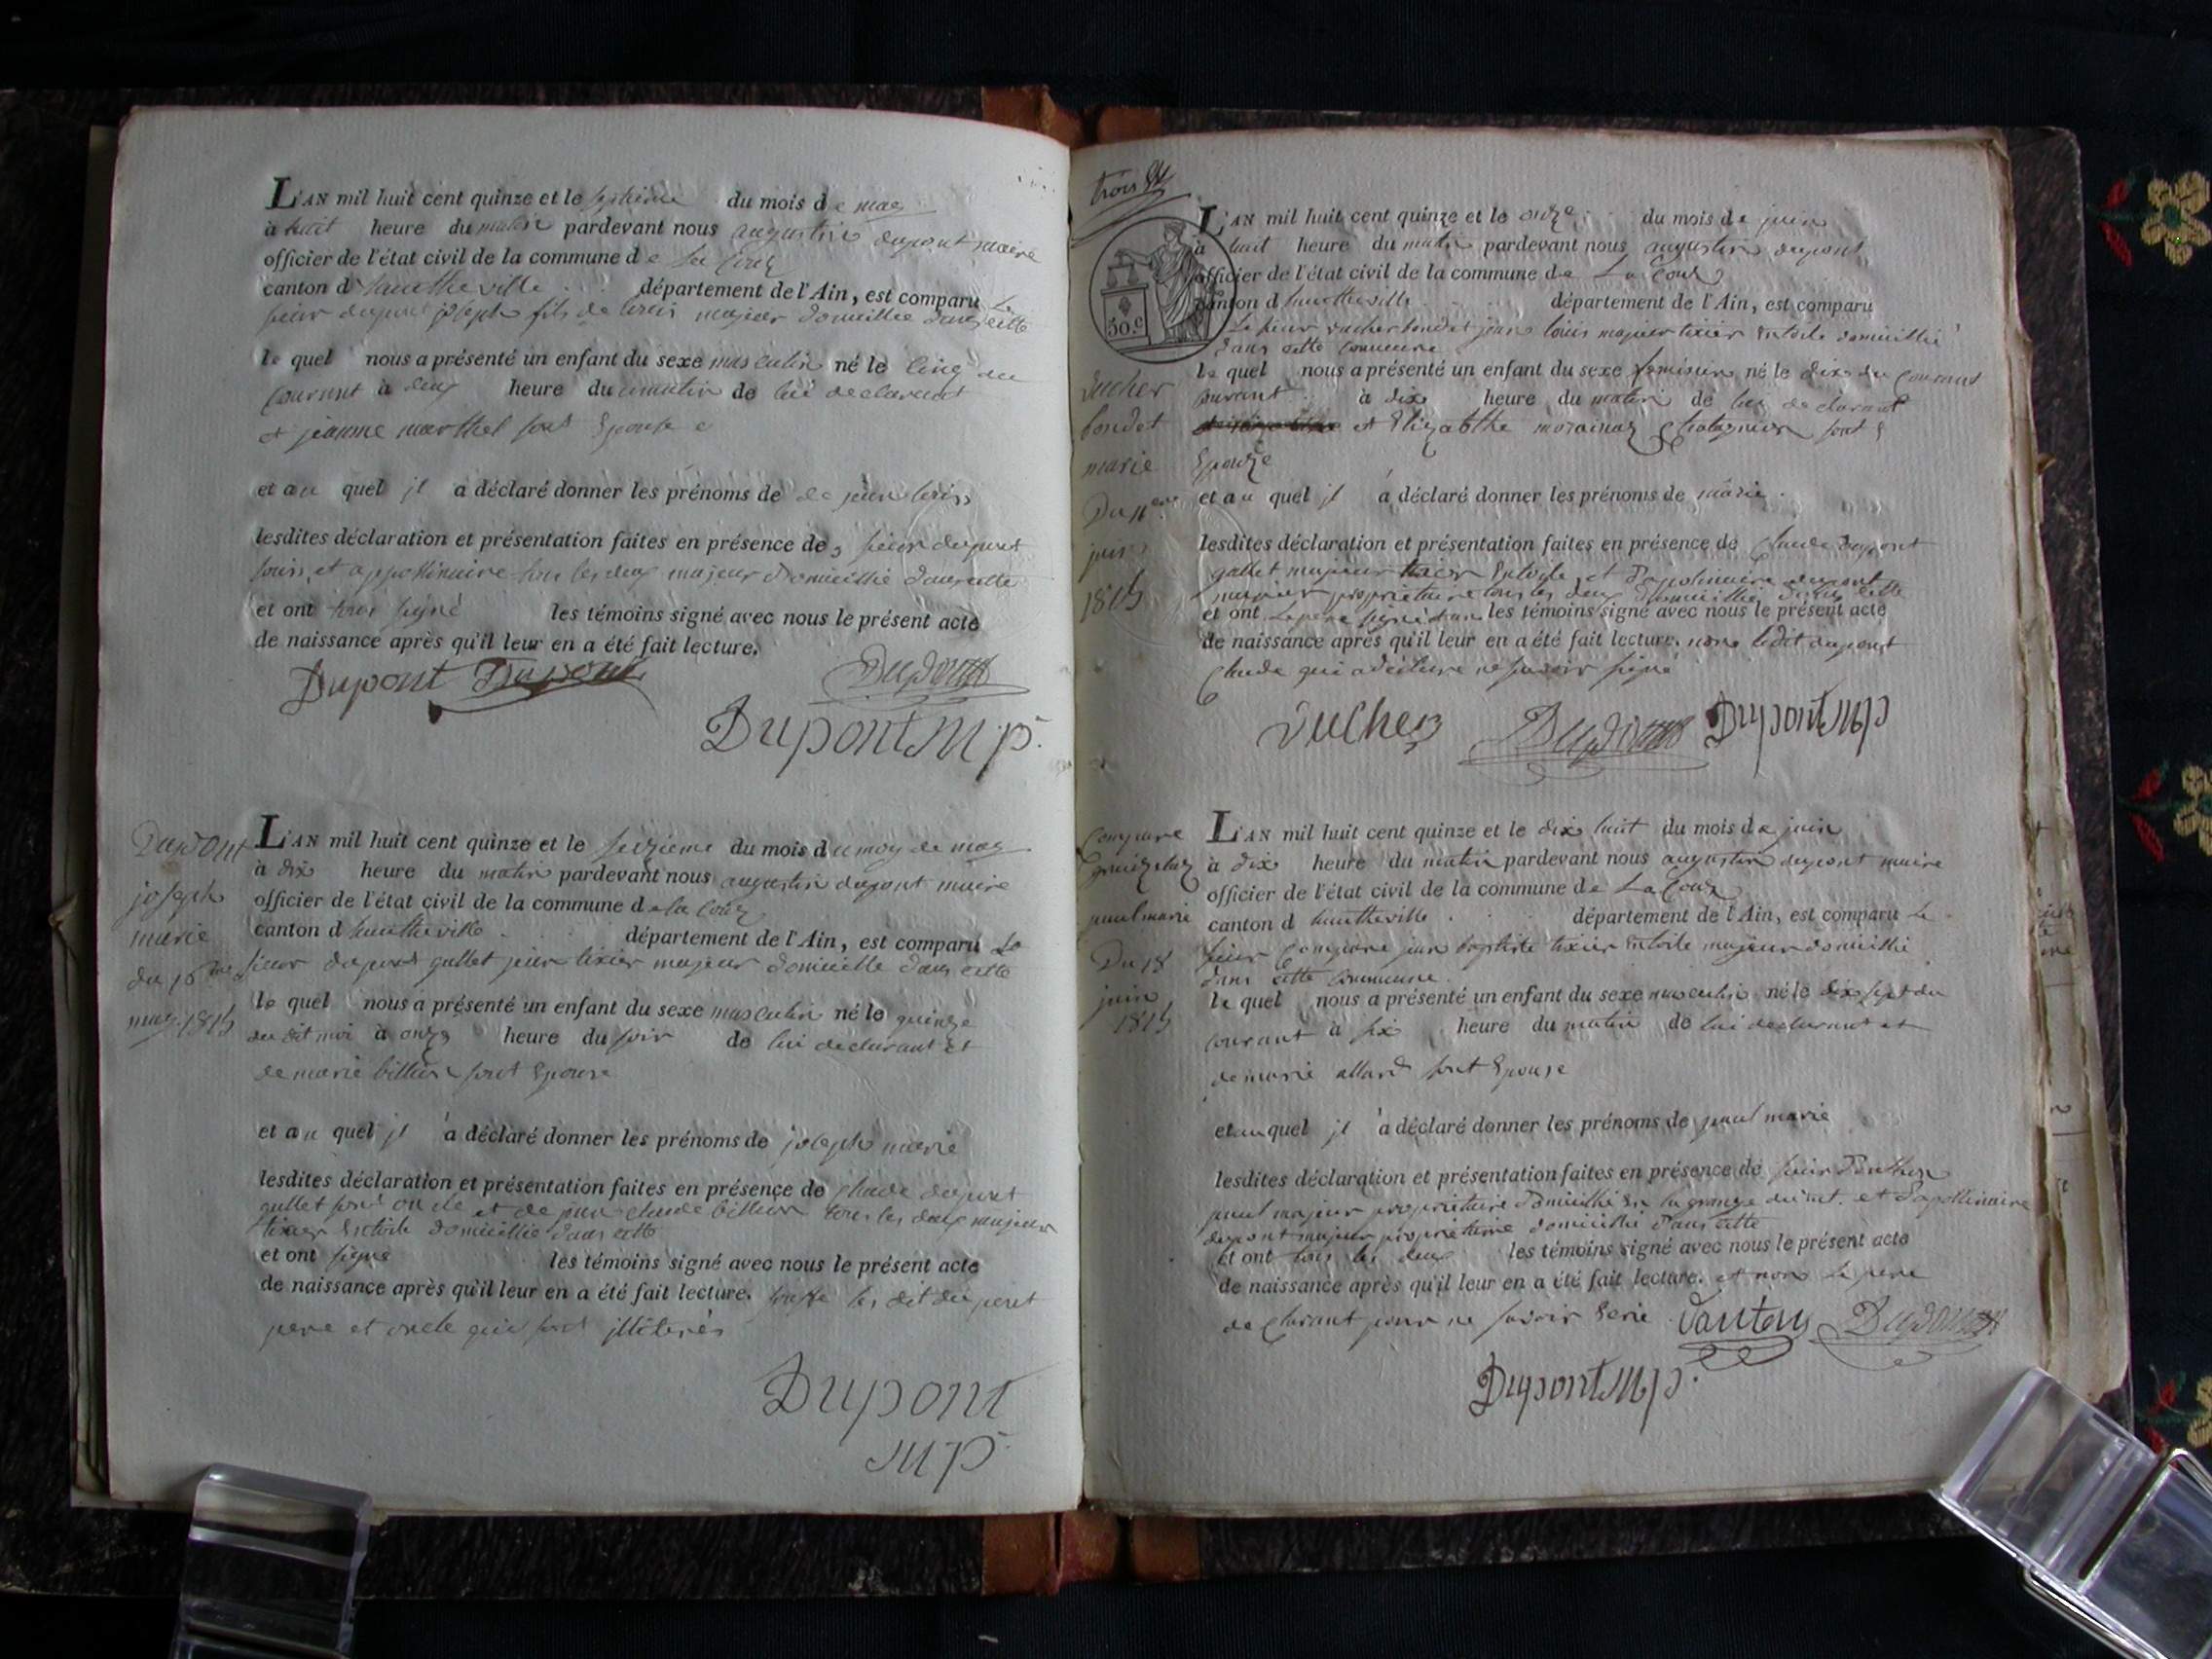 L'AN mil huit cent quinze et le septième du mois de may
à huit heure du matin pardevant nous augustin dupont maire
officier de l'état civil de la commune de La Couz
canton d'hautheville département de l'Ain, est comparu Le
sieur dupont joseph fils de louis majeur domicillié dans cette
le quel nous a présenté un enfant du sexe masculin né le cinq du
courant à deux heure du matin de lui declarant
et jeanne marthel sont Epouse
et au quel jl a déclaré donner les prénoms de de jean louis
lesdites déclaration et présentation faites en présence de sieur dupont
louis et appollinaire tous les deux majeur domicillié dans cette
et ont tous signé les témoins signé avec nous le présent acte
de naissance après qu'il leur en a été fait lecture.
Dupont Dupont Dupont
Dupont M p.
Dupont
joseph
marie
du 16me
may 1815
L'AN mil huit cent quinze et le seizieme du mois du moy de may
à dix heure du matin pardevant nous augustin dupont maire
officier de l'état civil de la commune de la Couz
canton d hautheville département de l'Ain, est comparu Le
sieur dupont gullet jean tixier majeur domicillié dans cette
le quel nous a présenté un enfant du sexe masculin né le quinze
du dit moi à onze heure du soir de lui declarant et
de marie billion sont Epouse
et au quel jl a déclaré donner les prénoms de joseph marie
lesdites déclaration et présentation faites en présence de Claude dupont
gullet sont oncle et de jean claude billion tous les deux majeur
tixier Entoile domicillié dans cette
et ont signé les témoins signé avec nous le présent acte
de naissance après qu'il leur en a été fait lecture. les dit dupont
pere et oncle qui sont jlliterés
Dupont
M p.
trois
30.c
ducher
bondet
marie
Du 11eme
juin
1815
L'AN mil huit cent quinze et le onze du mois de juin
à huit heure du matin pardevant nous augustin dupont
officier de l'état civil de la commune de La Couz
canton d hautheville département de l'Ain, est comparu
Le sieur ducher bondet jean louis majeur tixier Entoile domicillié
dans cette commune
le quel nous a présenté un enfant du sexe feminin né le dix du courant
courant à dix heure du matin de lui declarant
et Elizabthe sont
Epouze
et au quel jl a déclaré donner les prénoms de marie.
lesdites déclaration et présentation faites en présence de Claude dupont
gullet majeur tixier Entoile et d'apolinaire dupont
majeur propriétaire tous les deux domicillié dans cette
et ont Le pere signé les témoins signé avec nous le présent acte
de naissance après qu'il leur en a été fait lecture. non ledit dupont
Claude qui a déclaré ne savoir signé
Ducher Dupont Dupont M p
Compare
paul marie
Du 18
juin
1815
L'AN mil huit cent quinze et le dix huit du mois de juin
à dix heure du matin pardevant nous augustin dupont maire
officier de l'état civil de la commune de La Couz
canton d hautheville département de l'Ain, est comparu Le
sieur Compare jean baptiste tixier Entoile majeur domicillié
dans cette commune.
le quel nous a présenté un enfant du sexe masculin né le dix sept du
courant à six heure du matin de lui declarant et
de marie allard sont Epouse
et au quel jl a déclaré donner les prénoms de paul marie
lesdites déclaration et présentation faites en présence de sieur
paul majeur propriétaire domicillié En la grange et d'apollinaire
dupont majeur propriétaire domicillié dans cette
et ont tous les deux les témoins signé avec nous le présent acte
de naissance après qu'il leur en a été fait lecture. et non Le pere
de Clarant pour ne savoir Ecrire Dupont
Dupont M p.